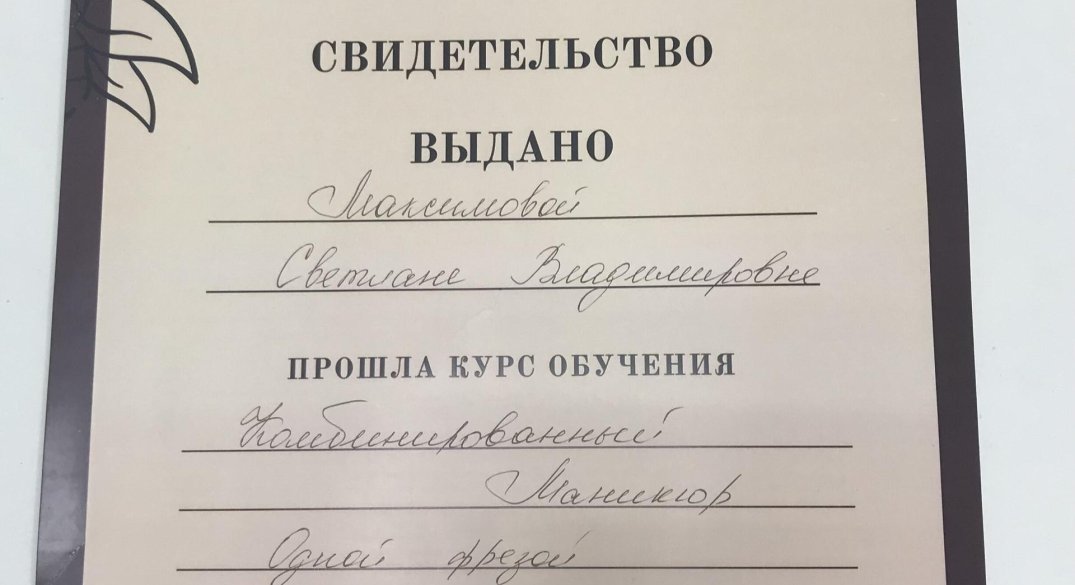 СВИДЕТЕЛЬСТВО
ВЫДАНО
Максимовой
Светлане Владимировне
ПРОШЛА КУРС ОБУЧЕНИЯ
Комбинированный
Маникюр
Одной фрезой